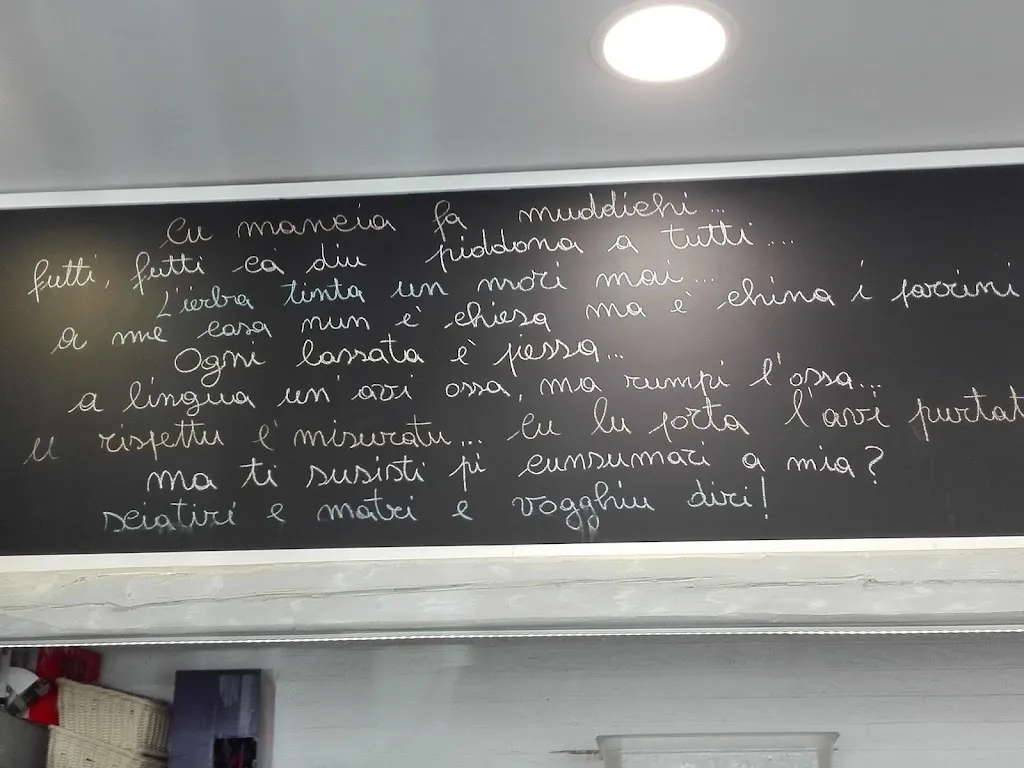 Cu mancia fa muddichi...
futti, futti ca diu piddona a tutti....
L'erba tinta un mori mai...
a me casa nun è chiesa ma è china i parrini
Ogni lassata è pessa...
a lingua un'avi ossa, ma rumpi l'ossa...
u rispettu é misuratu... cu lu porta l'avi purtat
ma ti susisti pi cunsumari a mia?
sciatiri e matri e vogghiu diri!